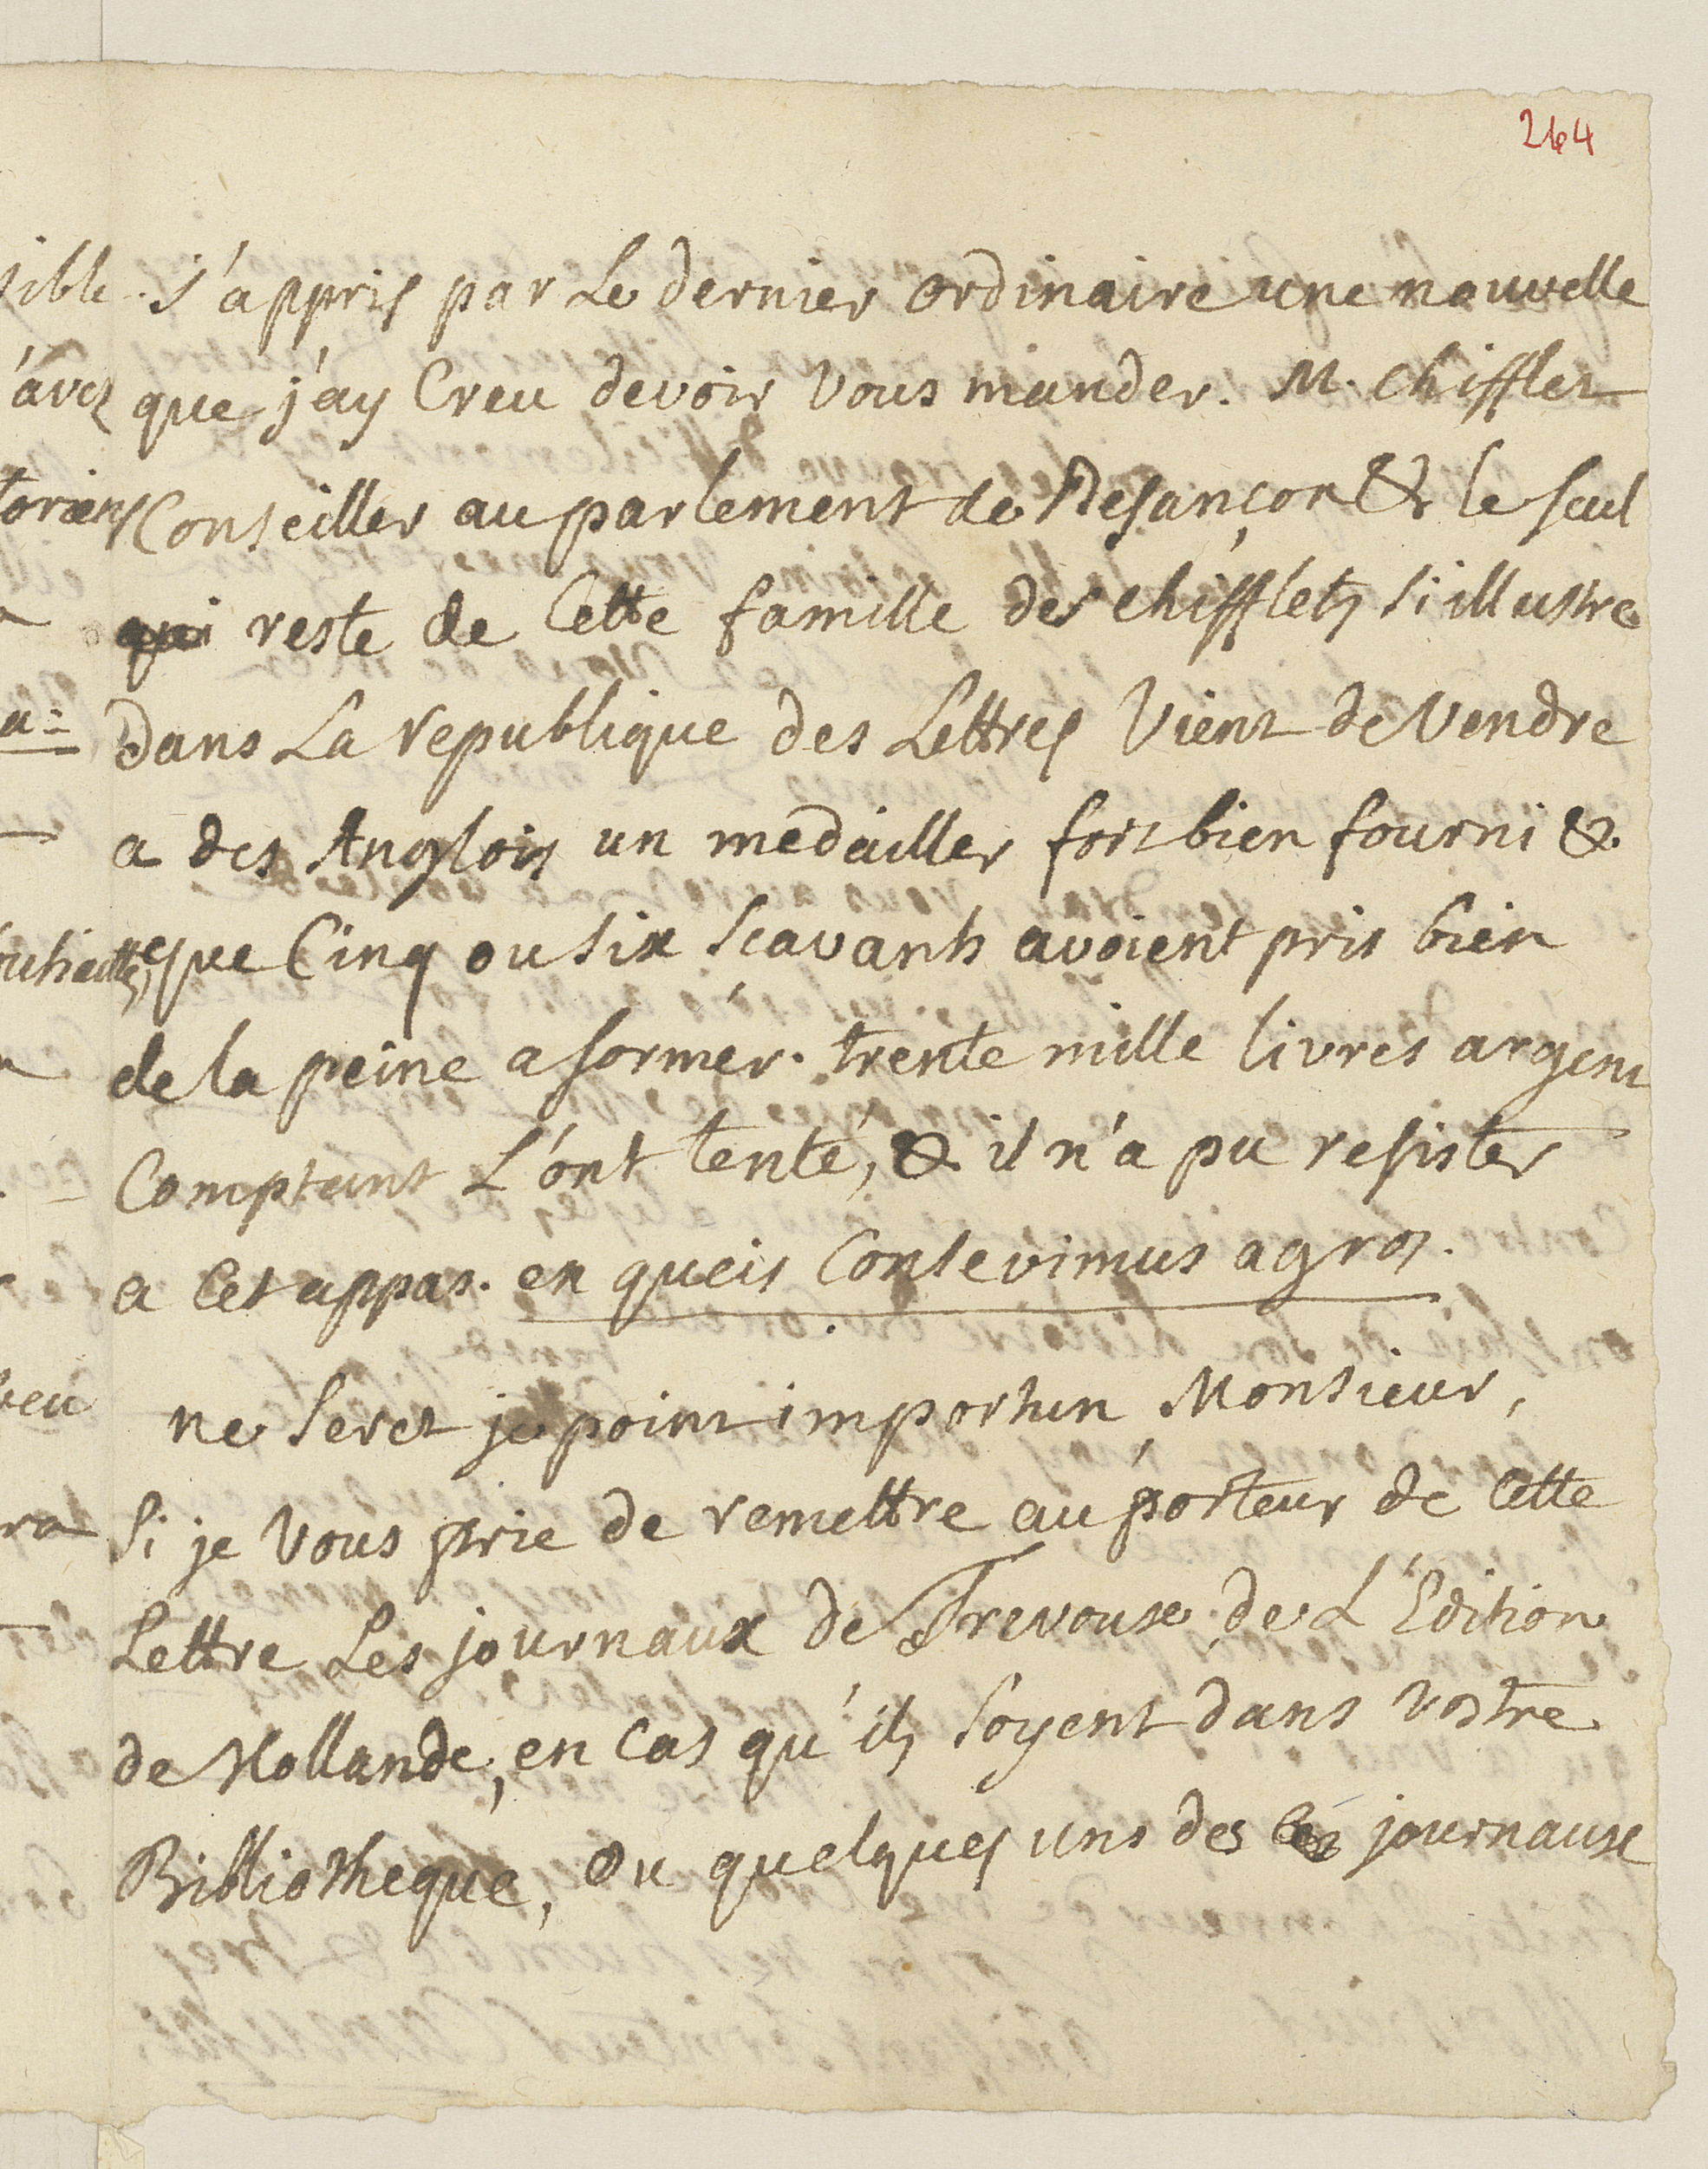 264
j'appris par Le dernier ordinaire une nouvelle
que j'ay Creu devoir vous mander. M. chifflet
Conseiller au parlement de Besançon & le seul
qui reste de Cette famille des chifflets si illustre
Dans La republique des Lettres vient de vendre
a des Anglois un medailler fort bien fourni &
que Cinq ou six sçavants avoient pris bien
de la peine a former. trente mille livres argent
Comptant L'ont tenté, & il n'a pu resister
a Cet appas. en queis Consevimus agros.
ne seret je point importun, Monsieur,
si je vous prie de remettre au porteur de Cette
Lettre Les journaux de Trevoux de L'Edition
de Hollande, en cas qu'ils soyent dans vostre
Bibliotheque, ou quelques uns des journaux